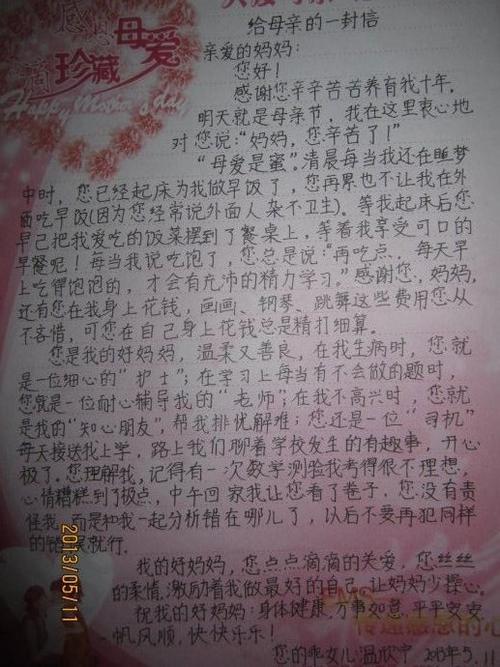 感恩母爱
珍藏
Happy Mother's day
给母亲的一封信
亲爱的妈妈：
您好！
感谢您辛辛苦苦养育我十年。
明天就是母亲节，我在这里衷心地
对您说：“妈妈，您辛苦了！”
“母爱是蜜”。清晨每当我还在睡梦
中时，您已经起床为我做早饭了，您再累也不让我在外
面吃早饭(因为您经常说外面人杂不卫生)。等我起床后您
早已把我爱吃的饭菜摆到了餐桌上，等着我享受可口的
早餐呢！每当我说吃饱了，您总是说：“再吃点，每天早
上吃得饱饱的，才会有充沛的精力学习。”感谢您，妈妈，
还有您在我身上花钱，画画、钢琴、跳舞这些费用您从
不吝惜，可您在自己身上花钱总是精打细算。
您是我的好妈妈，温柔又善良，在我生病时，您就
是一位细心的“护士”；在学习上每当有不会做的题时，
您就是一位耐心辅导我的“老师”；在我不高兴时，您就
是我的“知心朋友”，帮我排忧解难；您还是一位“司机”
每天接送我上学，路上我们聊着学校发生的有趣事，开心
极了。您理解我，记得有一次数学测验我考得很不理想，
心情糟糕到了极点，中午回家我让您看了卷子，您没有责
怪我，而是和我一起分析错在哪儿了，以后不要再犯同样
的错误就行。
我的好妈妈，您点点滴滴的关爱，您丝丝
的柔情，激励着我做最好的自己，让妈妈少操心。
祝我的好妈妈：身体健康，万事如意，平平安安
一帆风顺，快快乐乐！
您的乖女儿温欣宁 2013年5.11
2013/05/11